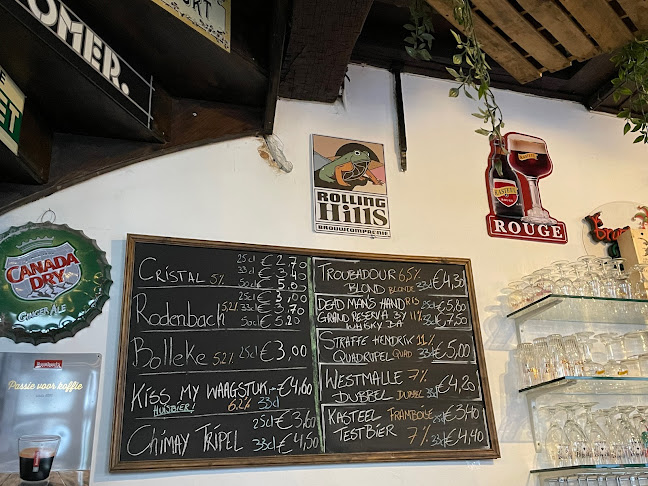 OMER.
ET
CANADA DRY
GINGER ALE
Passie voor koffie
ROLLING
Hills
BROUWCOMPAGNIE
KASTEEL
ROUGE
CRISTAL 5% 25cl €2,70
33cl €3,40
50cl €5,00
Rodenbach 5.2% 25cl €3,00
33cl €3,70
50cl €5,20
Bolleke 5.2% 25cl €3,00
KISS MY WAAGSTUK.. €4,60
HUISBIER! 6.2% 33cl
CHIMAY TRIPEL 25cl €3,60
33cl €4,50
TROUBADOUR 6.5% 33cl €4,30
BLOND BLONDE
DEAD MAN'S HAND RIS 25cl €5,80
GRAND RESERVA BY 11% 33cl €7,50
WHISKY BA
STRAFFE HENDRIK 11% 33cl €5,00
QUADRUPEL QUAD
WESTMALLE 7% 33cl €4,20
DUBBEL DUBBEL
KASTEEL FRAMBOISE 25cl €3,40
TESTBIER 7% 33cl €4,40